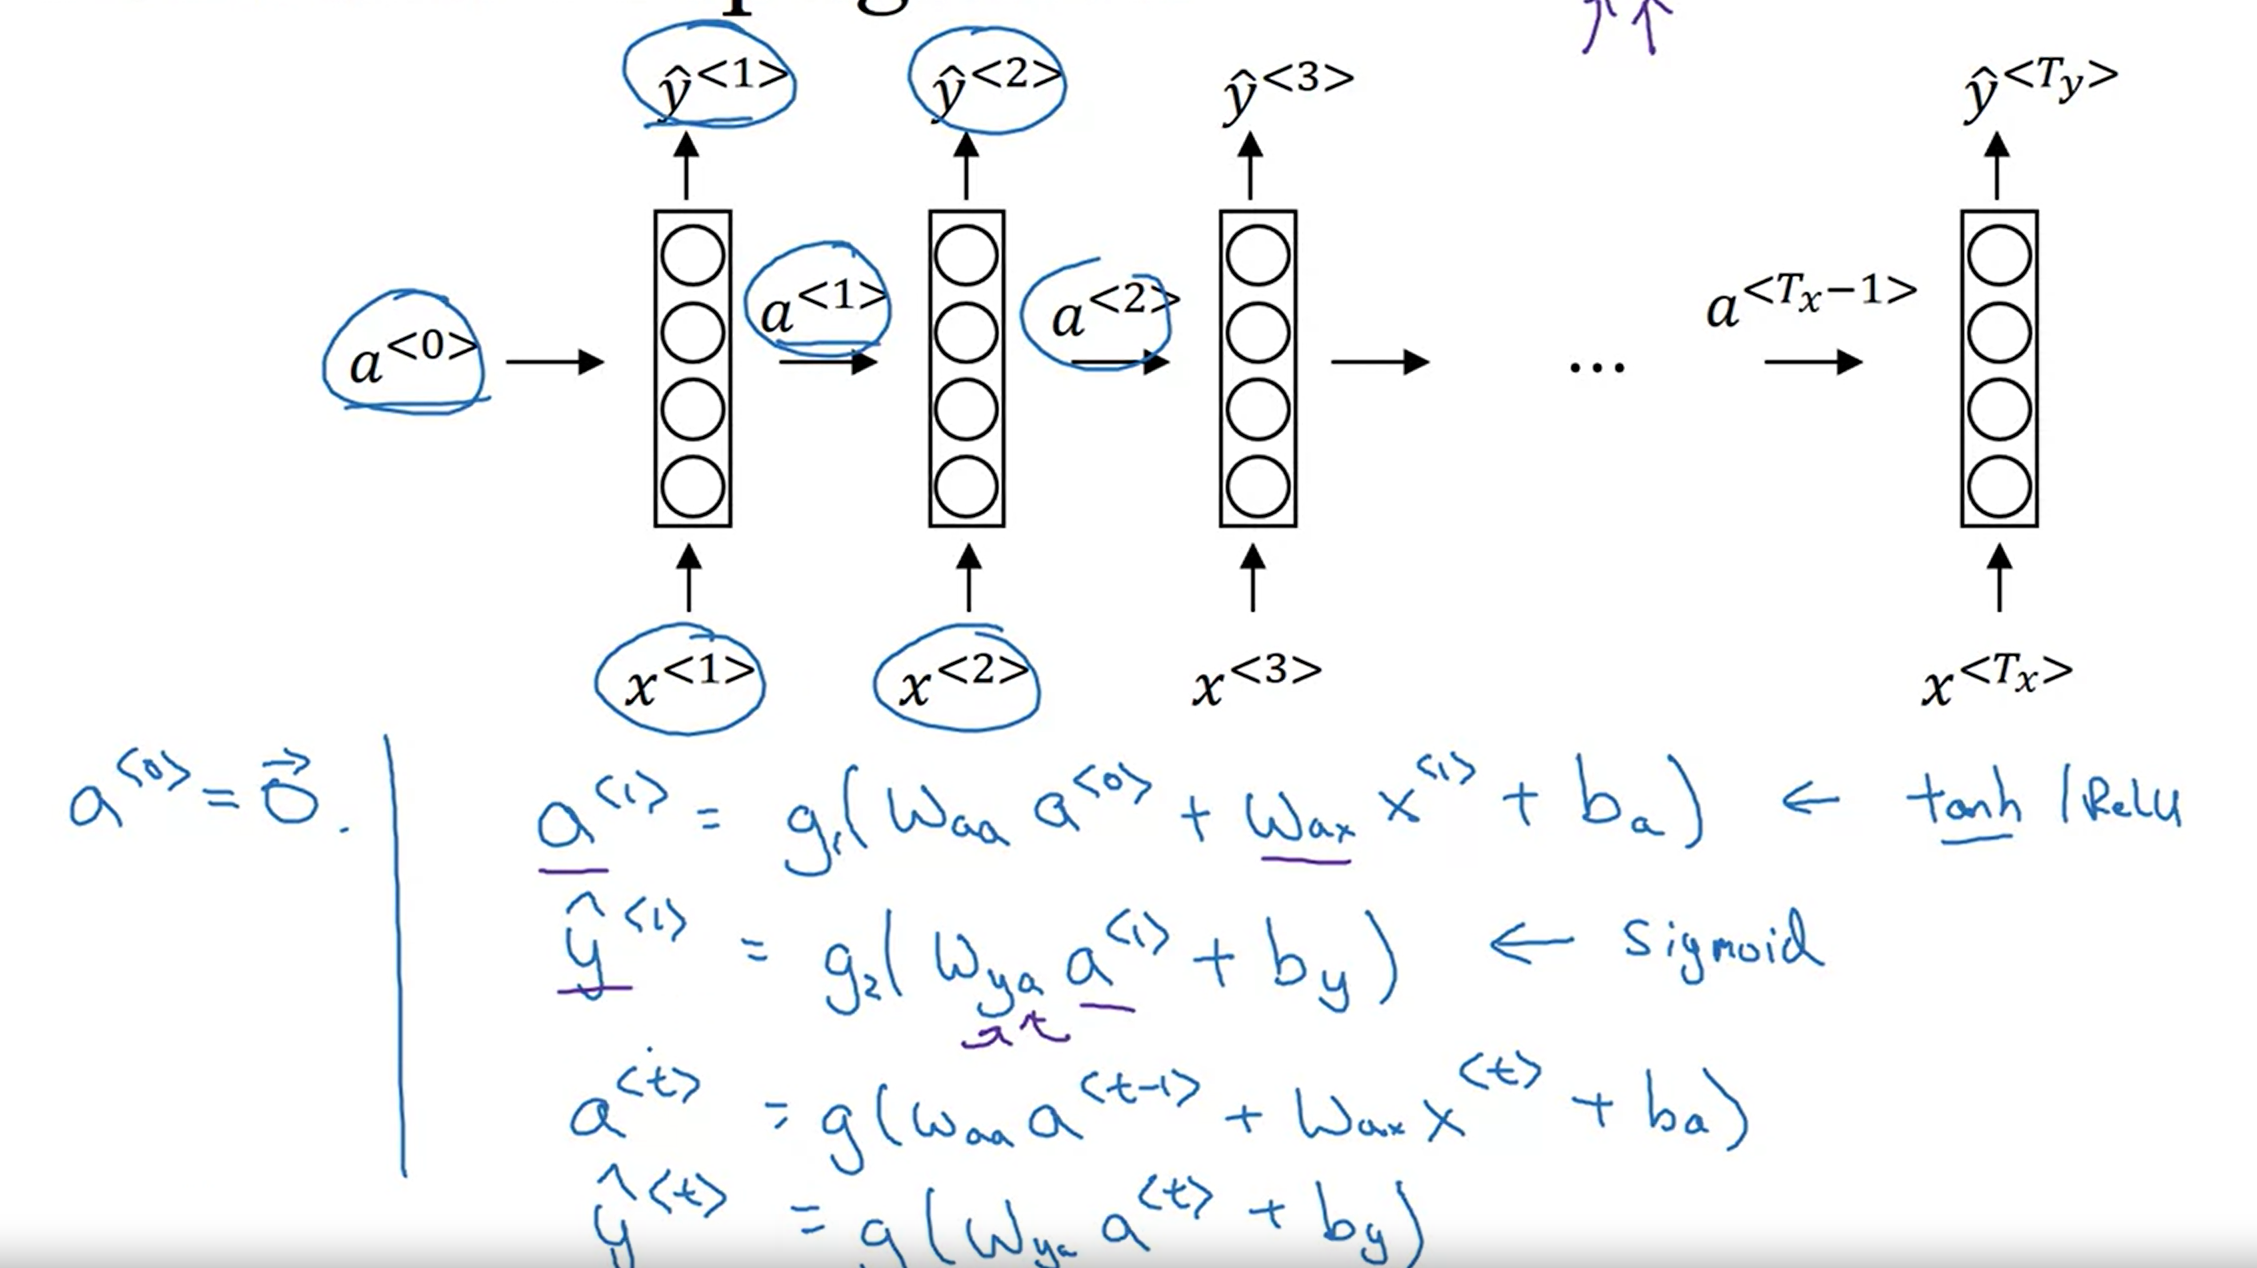 ŷ<1> ŷ<2> ŷ<3> ŷ<Ty>
a<0> a<1> a<2> ... a<Tx−1>
x<1> x<2> x<3> x<Tx>
a<0> = 0⃗.
a<1> = g₁(Waa a<0> + Wax x<1> + ba) ← tanh | ReLU
ŷ<1> = g₂(Wya a<1> + by) ← sigmoid
a<t> = g(Waa a<t-1> + Wax x<t> + ba)
ŷ<t> = g(Wya a<t> + by)